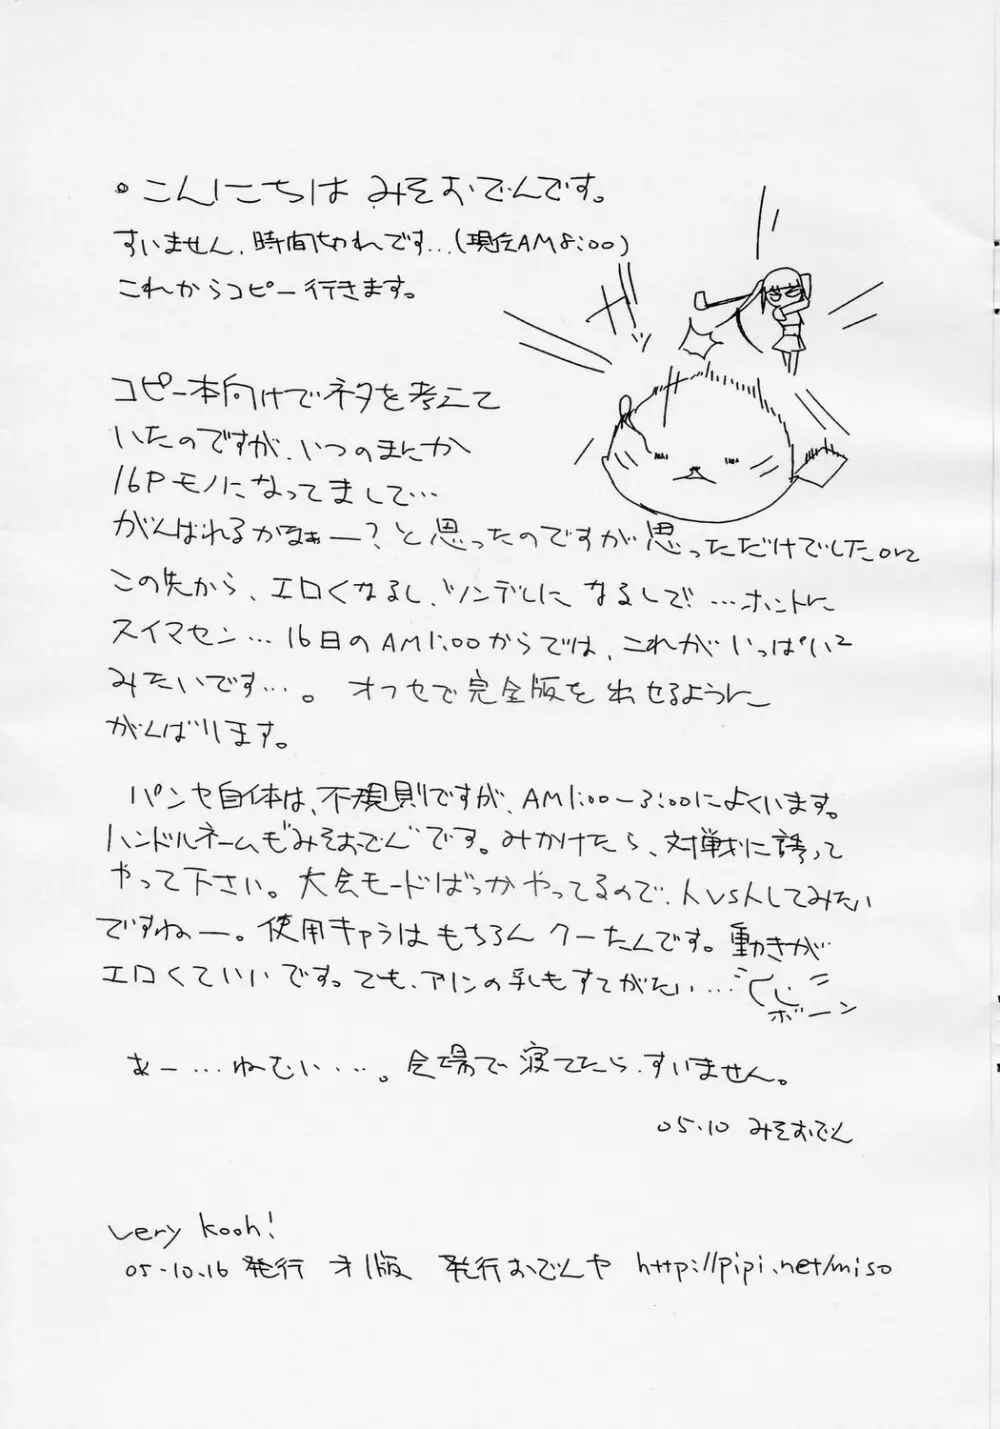 。こんにちは みそおでんです。
すいません、時間切れです…(現在AM8:00)
これからコピー行きます。
コピー本向けでネタを考えて
いたのですが、いつのまにか
16Pモノになってまして…
がんばれるかなぁー?と思ったのですが思っただけでしたorz
この先から、エロくなるし、ツンデレになるしで! …ホントに
スイマセン…16日のAM1:00からでは、これがいっぱい²
みたいです…。 オフセで完全版を出せるように
がんばります。
パンヤ自体は、不規則ですが、AM1:00~3:00によくいます。
ハンドルネームも"みそおでん"です。みかけたら、対戦に誘って
やって下さい。大会モードばっかやってるので、人vs人してみたい
ですねー。使用キャラはもちろんクーたんです。動きが
エロくていいです。でも、アリンの乳もすてがたい…
ボーン
あー…ねむい…。会場で寝てたら、すいません。
05.10 みそおでん
Very kooh!
05.10.16 発行 オリ版 発行おでんや http://pipi.net/miso